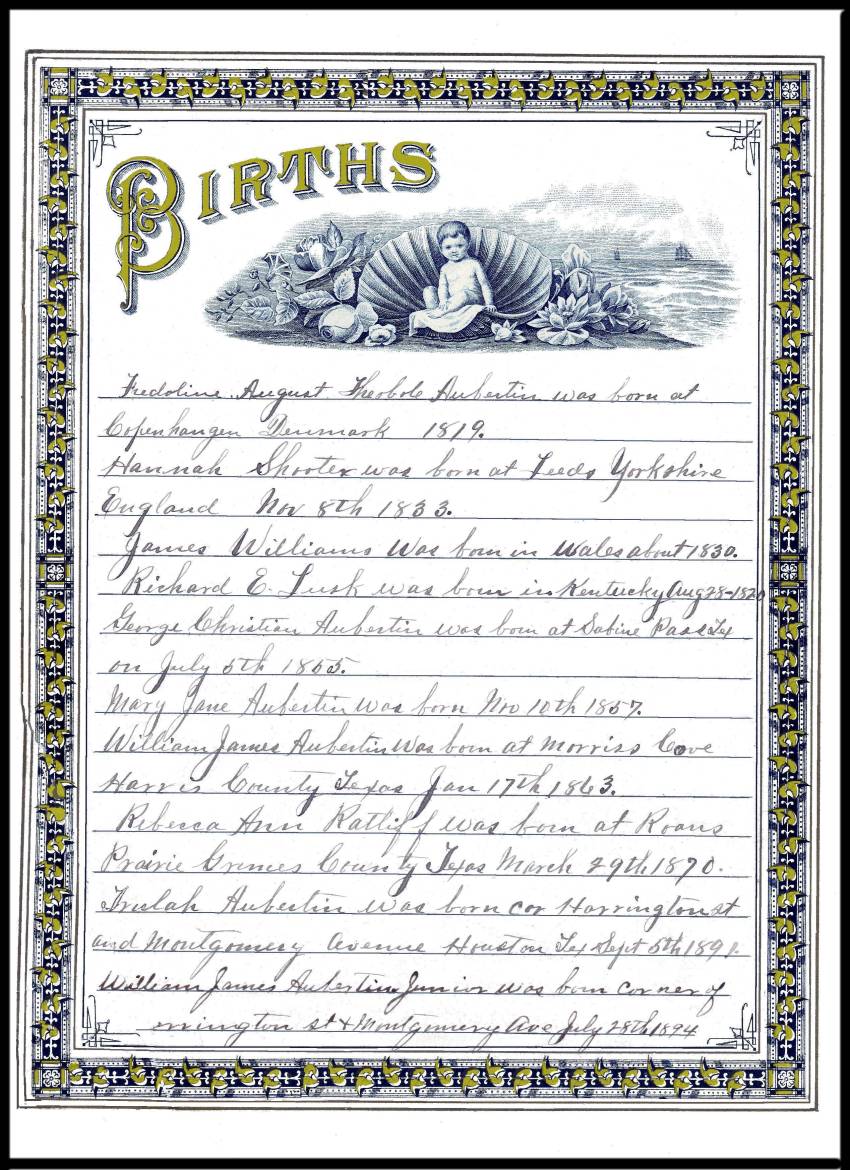 BIRTHS
Fredoline August Theobole Aubertin was born at
Copenhangen Denmark 1819.
Hannah Shooter was born at Leeds Yorkshire
England Nov 8th 1833.
James Williams was born in Wales about 1830.
Richard E. Lusk was born in Kentucky Aug 28-1820
George Christian Aubertin was born at Sabine Pass Tex
on July 5th 1855.
Mary Jane Aubertin was born Nov 10th 1857.
William James Aubertin was born at Morriss Cove
Harris County Texas Jan 17th 1863.
Rebecca Ann Ratliff was born at Roans
Prairie Grimes County Texas March 29th 1870.
Trulah Aubertin was born cor Harrington st
and Montgomery Avenue Houston Tex Sept 5th 1891.
William James Aubertin Junior was born corner of
errington st & Montgomery Ave July 28th 1894